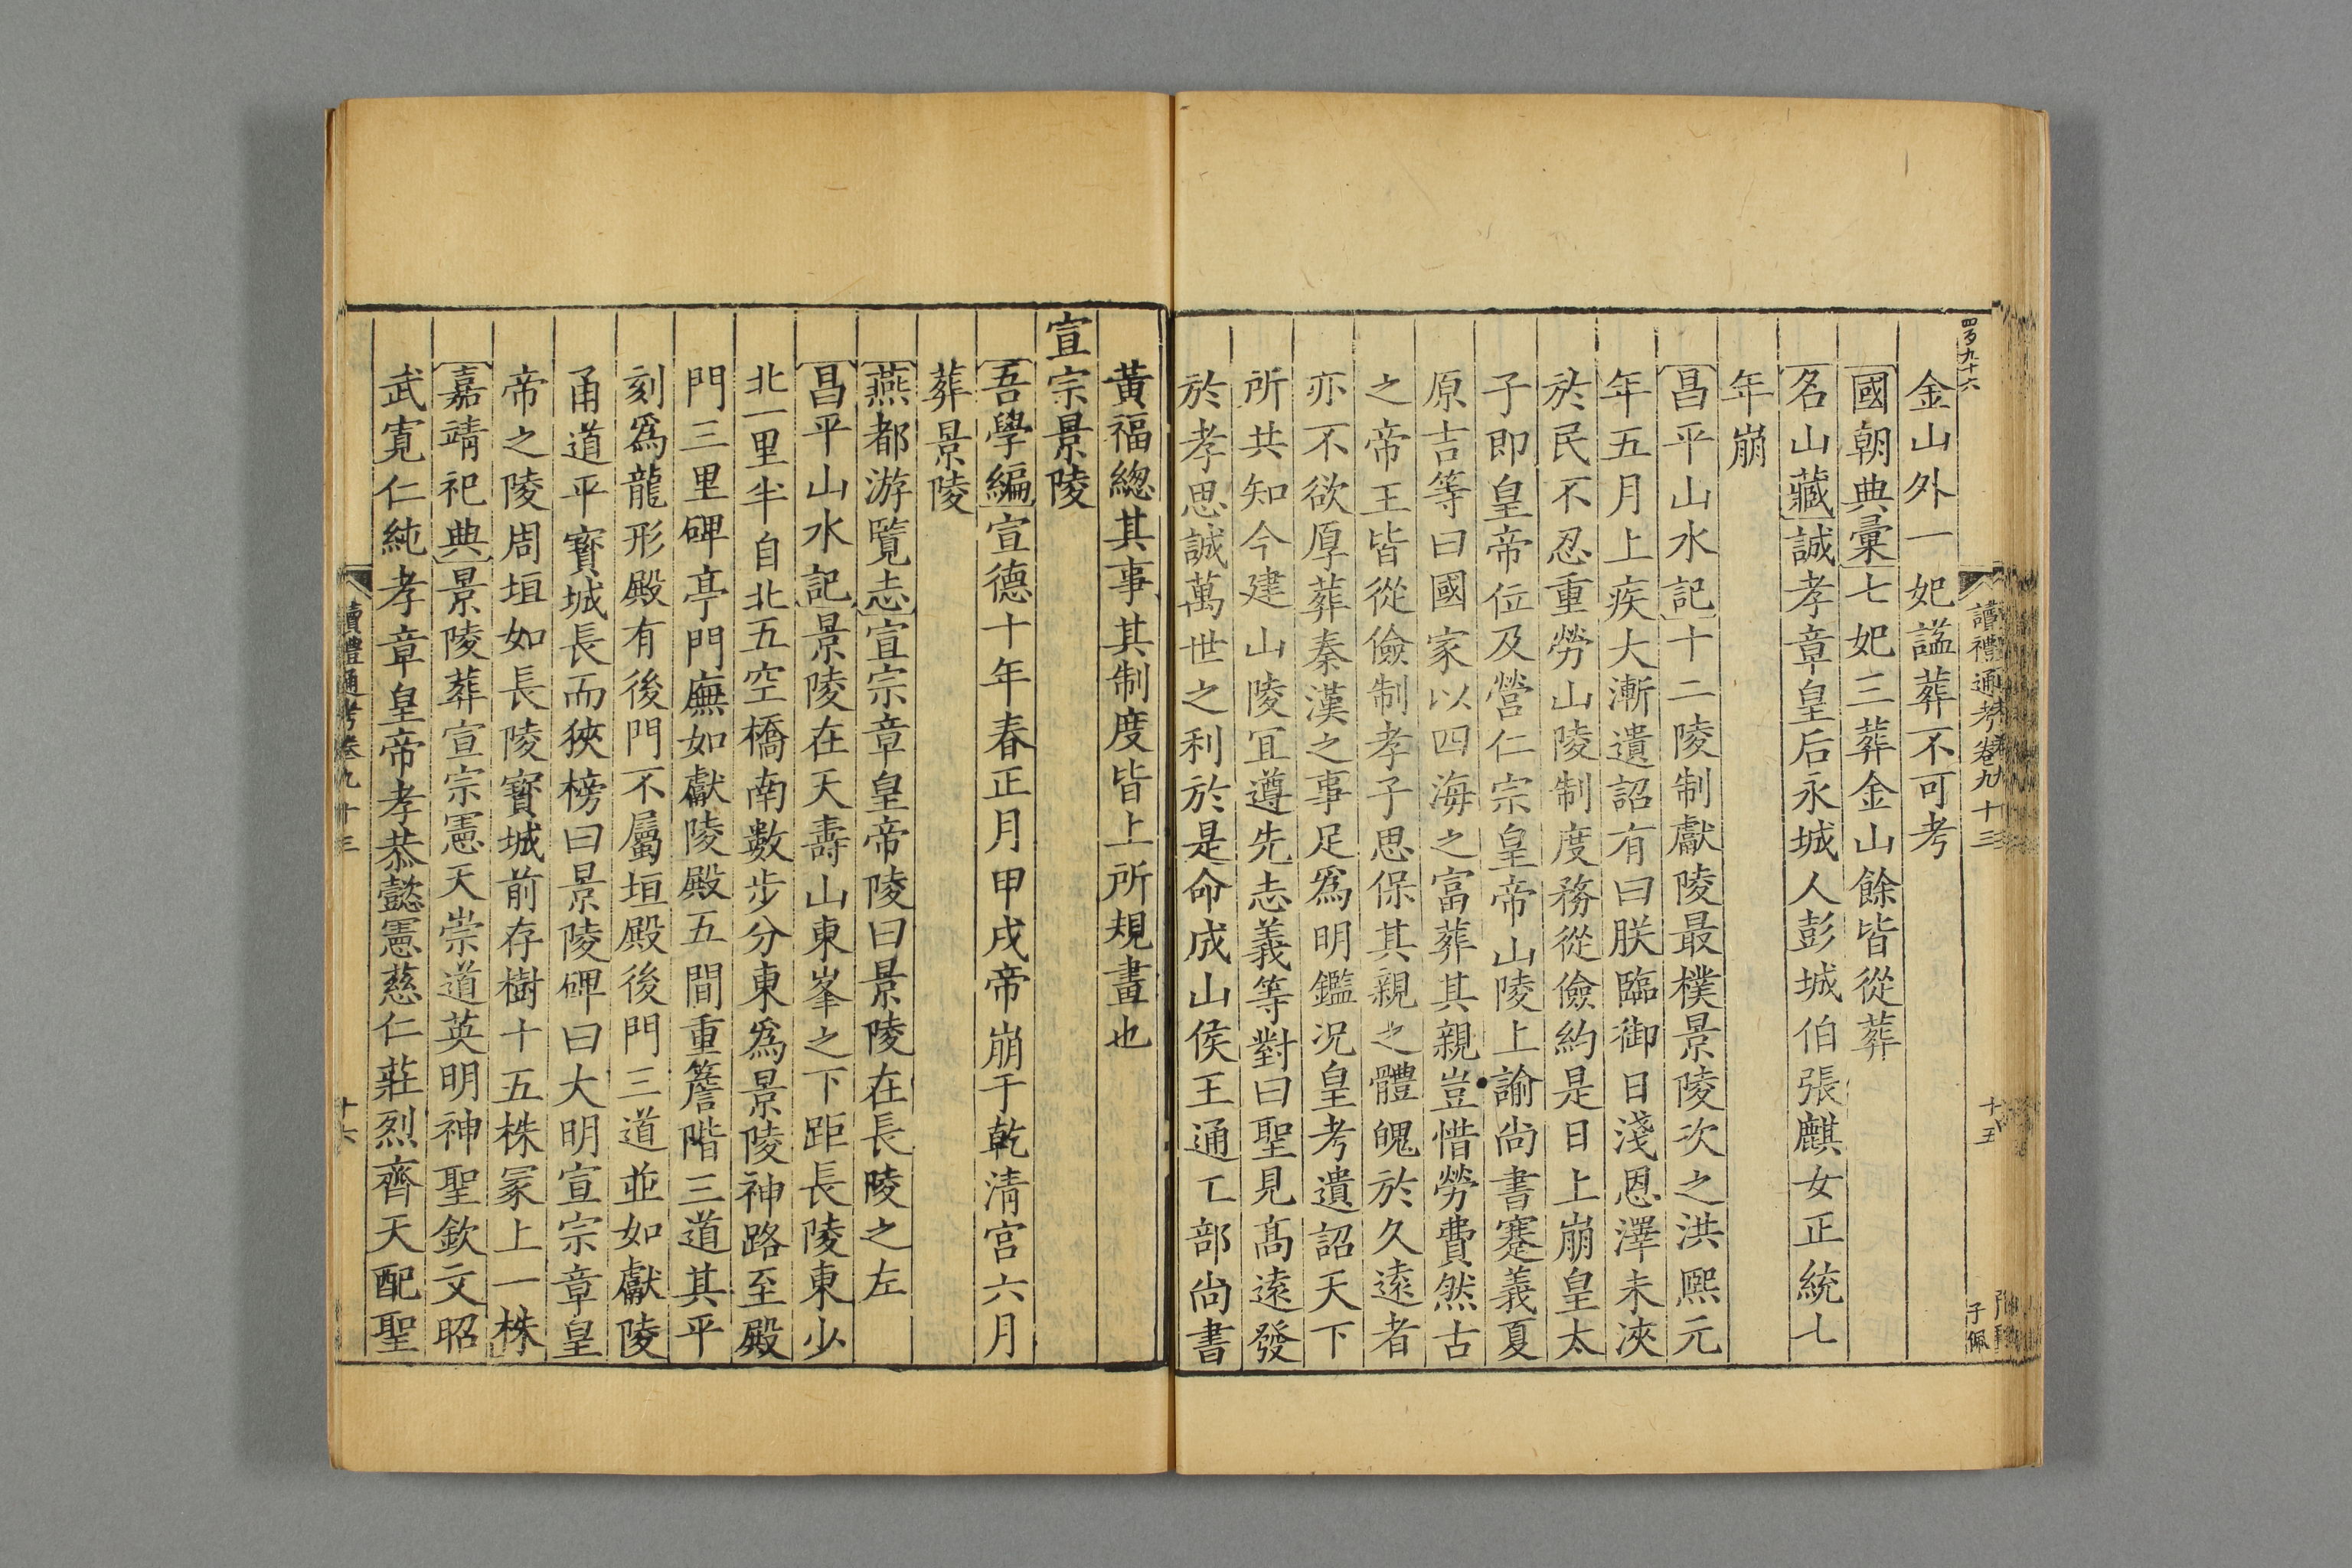 四百九十六
讀禮通考卷九十三
十五
子佩
金山外一妃謚葬不可考
國朝典彙七妃三葬金山餘皆從葬
名山藏誠孝章皇后永城人彭城伯張麒女正統七
年崩
昌平山水記十二陵制獻陵最樸景陵次之洪熙元
年五月上疾大漸遺詔有曰朕臨御日淺恩澤未浹
於民不忍重勞山陵制度務從儉約是日上崩皇太
子即皇帝位及營仁宗皇帝山陵上諭尚書蹇義夏
原吉等曰國家以四海之富葬其親豈惜勞費然古
之帝王皆從儉制孝子思保其親之體魄於久遠者
亦不欲厚葬秦漢之事足爲明鑑况皇考遺詔天下
所共知今建山陵宜遵先志義等對曰聖見高遠發
於孝思誠萬世之利於是命成山侯王通工部尚書
黃福總其事其制度皆上所規畫也
宣宗景陵
吾學編宣德十年春正月甲戌帝崩于乾清宮六月
葬景陵
燕都游覽志宣宗章皇帝陵曰景陵在長陵之左
昌平山水記景陵在天壽山東峯之下距長陵東少
北一里半自北五空橋南數步分東爲景陵神路至殿
門三里碑亭門廡如獻陵殿五間重簷階三道其平
刻爲龍形殿有後門不屬垣殿後門三道並如獻陵
甬道平寳城長而狹榜曰景陵碑曰大明宣宗章皇
帝之陵周垣如長陵寳城前存樹十五株冡上一株
嘉靖祀典景陵葬宣宗憲天崇道英明神聖欽文昭
武寛仁純孝章皇帝孝恭懿憲慈仁莊烈齊天配聖
讀禮通考卷九十三
十六